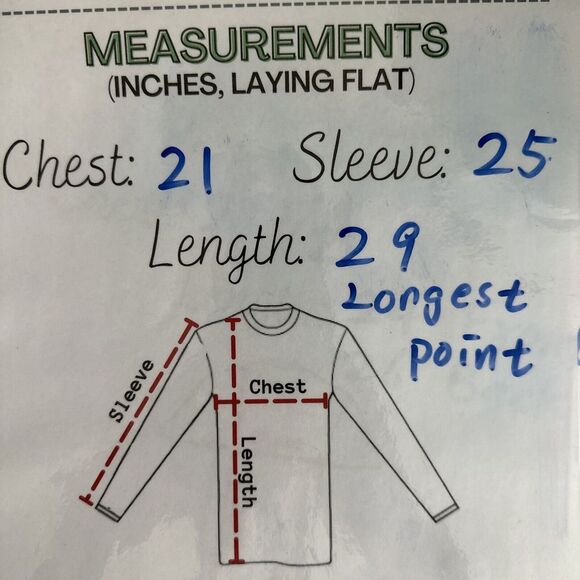 MEASUREMENTS
(INCHES, LAYING FLAT)
Chest: 21 Sleeve: 25
Length: 29
Longest
point
Sleeve
Chest
Length